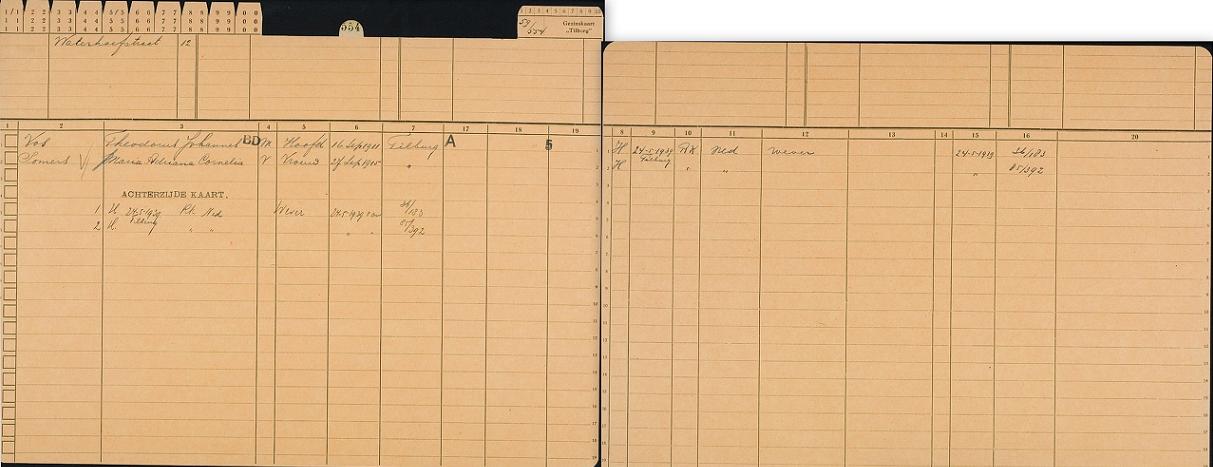 554
59/554 Gezinskaart
„Tilburg"
Waterhoefstraat 12
1 2 3 4 5 6 7 17 18 19
Vos Theodorus Johannes BD M Hoofd 16 Sep 1911 Tilburg A 5
Somers V Maria Adriana Cornelia V Vrouw 27 Sep 1915 "
ACHTERZIJDE KAART.
1 H. 24-5-1939 Tilburg R.k. Ned Wever 24-5-1939 36/183
2 H. " " " " 85/392
8 9 10 11 12 13 14 15 16 20
H 24-5-1939 Tilburg RK Ned wever 24-5-1939 36/183
H " " " 85/392